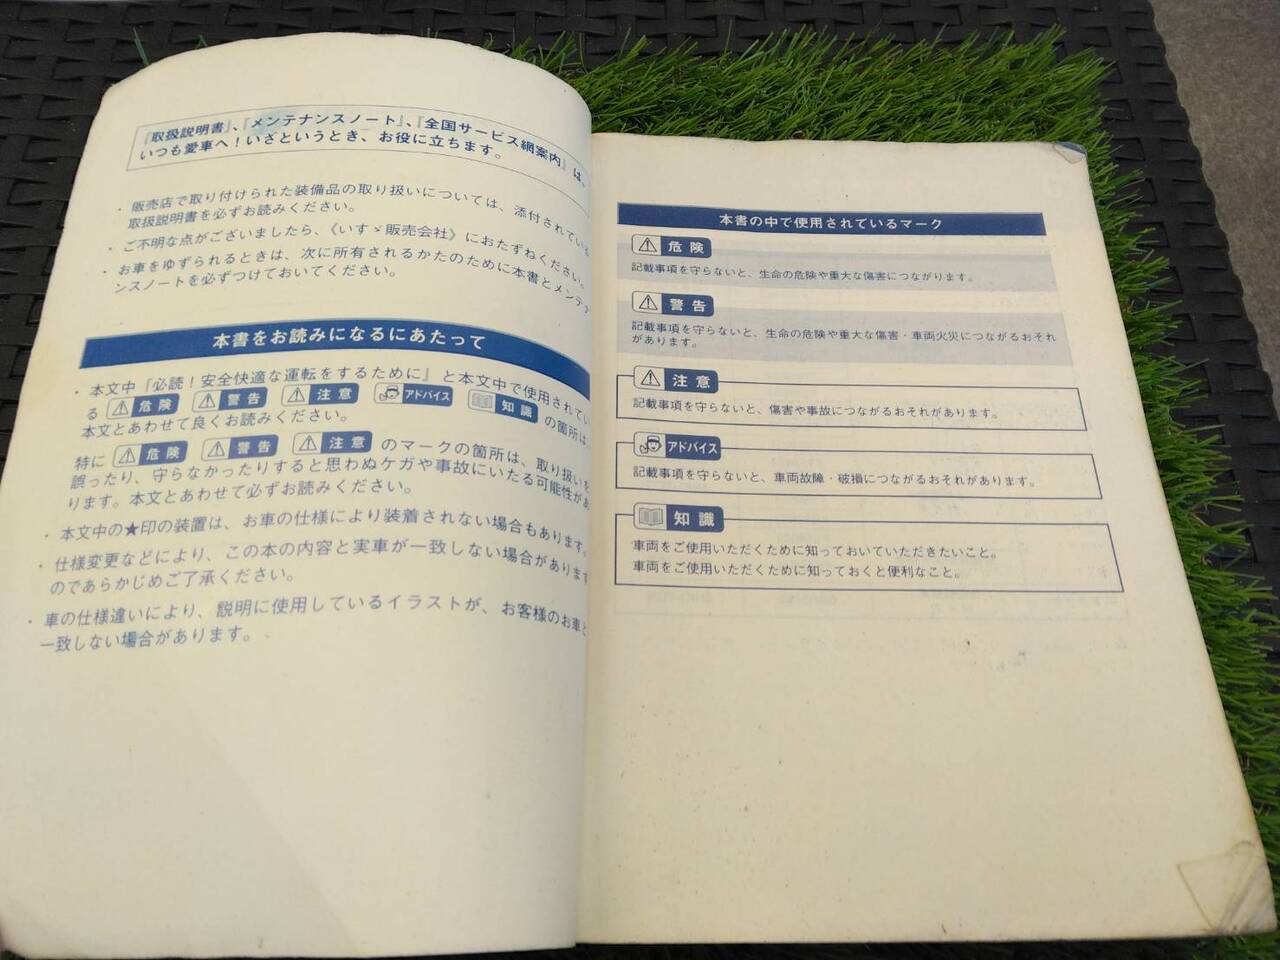 『取扱説明書』、『メンテナンスノート』、『全国サービス網案内』は、
いつも愛車へ！いざというとき、お役に立ちます。
・販売店で取り付けられた装備品の取り扱いについては、添付されている
取扱説明書を必ずお読みください。
・ご不明な点がございましたら、《いすゞ販売会社》におたずねください。
・お車をゆずられるときは、次に所有されるかたのために本書とメンテナ
ンスノートを必ずつけておいてください。
本書をお読みになるにあたって
・本文中『必読！安全快適な運転をするために』と本文中で使用されてい
る 危険 警告 注意 アドバイス 知識 の箇所は、
本文とあわせて良くお読みください。
特に 危険 警告 注意 のマークの箇所は、取り扱いを
誤ったり、守らなかったりすると思わぬケガや事故にいたる可能性があ
ります。本文とあわせて必ずお読みください。
・本文中の★印の装置は、お車の仕様により装着されない場合もあります。
・仕様変更などにより、この本の内容と実車が一致しない場合があります
のであらかじめご了承ください。
・車の仕様違いにより、説明に使用しているイラストが、お客様のお車と
一致しない場合があります。
本書の中で使用されているマーク
危険
記載事項を守らないと、生命の危険や重大な傷害につながります。
警告
記載事項を守らないと、生命の危険や重大な傷害・車両火災につながるおそれ
があります。
注意
記載事項を守らないと、傷害や事故につながるおそれがあります。
アドバイス
記載事項を守らないと、車両故障・破損につながるおそれがあります。
知識
車両をご使用いただくために知っておいていただきたいこと。
車両をご使用いただくために知っておくと便利なこと。